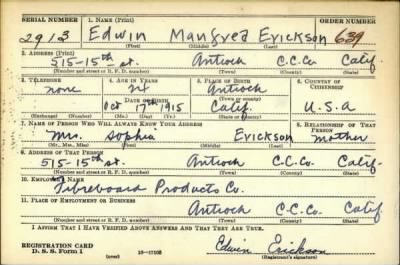 SERIAL NUMBER 1. NAME (Print) ORDER NUMBER
2913 Edwin Manfred Erickson 639
(First) (Middle) (Last)
2. ADDRESS (Print)
515-15th st. Antioch C.C.Co Calif.
(Number and street or R. F. D. number) (Town) (County) (State)
3. TELEPHONE 4. AGE IN YEARS 5. PLACE OF BIRTH 6. COUNTRY OF CITIZENSHIP
none 24 Antioch
DATE OF BIRTH (Town or county)
Oct 17 1915 Calif. U.S.A
(Mo.) (Day) (Yr.) (State or country)
7. NAME OF PERSON WHO WILL ALWAYS KNOW YOUR ADDRESS 8. RELATIONSHIP OF THAT PERSON
Mrs. Sophia Erickson Mother
(Mr., Mrs., Miss) (First) (Middle) (Last)
9. ADDRESS OF THAT PERSON
515-15th st. Antioch C.C.Co. Calif.
(Number and street or R. F. D. number) (Town) (County) (State)
10. EMPLOYER'S NAME
Fibreboard Products Co.
11. PLACE OF EMPLOYMENT OR BUSINESS
Antioch C.C.Co. Calif.
(Number and street or R. F. D. number) (Town) (County) (State)
I AFFIRM THAT I HAVE VERIFIED ABOVE ANSWERS AND THAT THEY ARE TRUE.
REGISTRATION CARD
D. S. S. Form 1 (over) Edwin Erickson
(Registrant's signature)